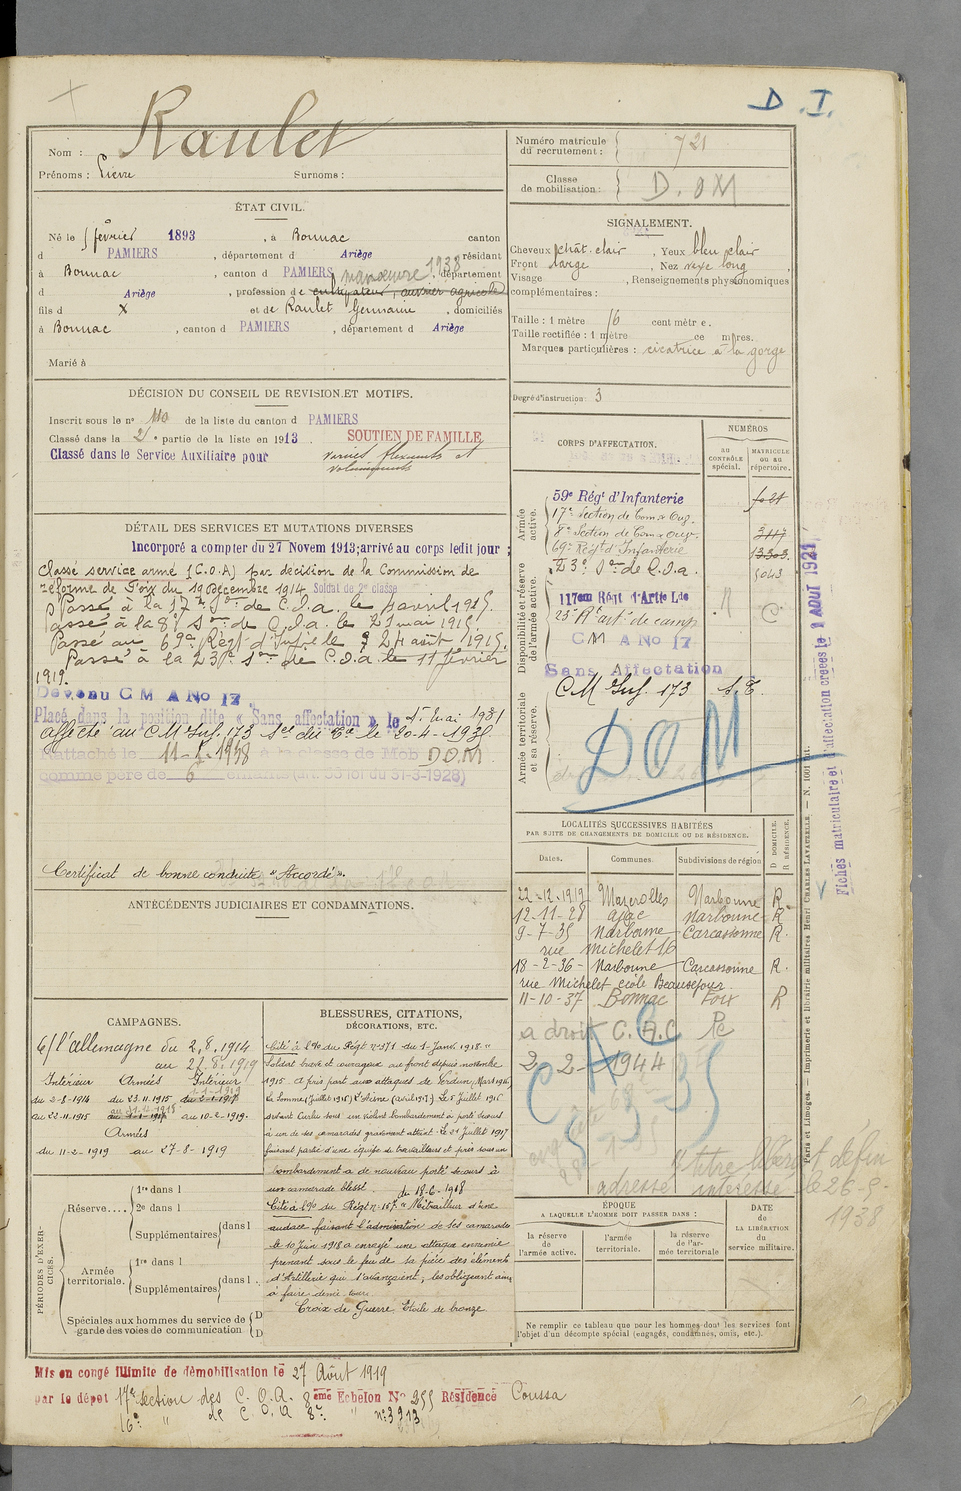 D. I.
Raulet
Nom :
Prénoms : Pierre Surnoms :
Numéro matricule du recrutement : 721
Classe de mobilisation : D. OM
ÉTAT CIVIL.
Né le 5 février 1893, à Bonnac canton
d PAMIERS, département d Ariège résidant
à Bonnac, canton d PAMIERS, département
manœuvre 1938
d Ariège, profession de cultivateur, ouvrier agricole
fils d x et de Raulet Germaine, domiciliés
à Bonnac, canton d PAMIERS, département d Ariège
Marié à
SIGNALEMENT.
Cheveux chât. clair, Yeux bleu clair
Front large, Nez long
Visage , Renseignements physionomiques
complémentaires :
Taille : 1 mètre 16 cent mètr e.
Taille rectifiée : 1 mètre ce m res.
Marques particulières : cicatrice à la gorge
Degré d'instruction : 3
DÉCISION DU CONSEIL DE REVISION ET MOTIFS.
Inscrit sous le n° 110 de la liste du canton d PAMIERS
Classé dans la 2e partie de la liste en 1913. SOUTIEN DE FAMILLE
Classé dans le Service Auxiliaire pour varices flexueuses et
volumineuses
DÉTAIL DES SERVICES ET MUTATIONS DIVERSES
Incorporé a compter du 27 Novem 1913; arrivé au corps ledit jour ;
Classé service armé (C.O.A) par décision de la Commission de
réforme de Foix du 10 Décembre 1914 Soldat de 2e classe
Passé à la 17e Son de C.O.a. le avril 1915.
Passé à la 8e Son de C.O.a. le 21 mai 1915
Passé au 69e Régt d'Infie le 24 août 1915.
Passé à la 23e Son de C.O.a. le 11 février
1919.
Devenu C M A No 17.
Placé dans la position dite « Sans affectation » le 5 mai 1931
affecté au C M Inf. 173 le 20-4-1935
Rattaché le 11-2-1938 à la classe de Mob DOM
comme père de 6 enfants (art. 58 loi du 31-3-1928)
Certificat de bonne conduite "Accordé".
CORPS D'AFFECTATION.
NUMÉROS
AU CONTRÔLE spécial.
MATRICULE OU AU répertoire.
Armée active.
59e Régt d'Infanterie
17e Section de Com. & Ouv.
8e Section de Com. & Ouv.
69e Régt d'Infanterie
23e Son de C.O.a. 5043
Disponibilité et réserve de l'armée active.
117eme Régt d'Artie Lde
23e Rt art. de camp
C M A No 17
Sans Affectation
C.M. Inf. 173 S.E.
Armée territoriale et sa réserve.
DOM
LOCALITÉS SUCCESSIVES HABITÉES
PAR SUITE DE CHANGEMENTS DE DOMICILE OU DE RÉSIDENCE.
D DOMICILE. R RÉSIDENCE.
Dates. Communes. Subdivisions de région
22-12-1919 Mazerolles Narbonne R.
12-11-28 ajac Narbonne R
9-7-35 Narbonne Carcassonne R.
rue Michelet 16
18-2-36 Narbonne Carcassonne R.
rue Michelet école Beauséjour.
11-10-37 Bonnac Foix R
a droit C. A. C
2 2 1944
C A C
ANTÉCÉDENTS JUDICIAIRES ET CONDAMNATIONS.
CAMPAGNES.
C/ l'allemagne du 2.8.1914
au 27.8.1919
Intérieur Armées Intérieur
du 2-8-1914 du 23.11.1915
au 22-11.1915 au 10-2-1919.
Armées
du 11-2-1919 au 27-8-1919
BLESSURES, CITATIONS,
DÉCORATIONS, ETC.
Cité à l'Ordre du Régt n° 371 du 1 Janv. 1918 "
Soldat brave et courageux au front depuis novembre
1915. A pris part aux attaques de Verdun, Mars 1916,
La Somme (Juillet 1916) l'Aisne (avril 1917). Le 5 Juillet 1916
devant Curlu sous un violent bombardement a porté secours
à un de ses camarades gravement atteint. Le 21 Juillet 1917
faisant partie d'une équipe de travailleurs et pris sous un
bombardement a de nouveau porté secours à
un camarade blessé. du 18-6-1918
Cité à l'Ordre du Régt n° 167 "Mitrailleur d'une
audace faisant l'admiration de ses camarades
le 10 Juin 1918 a enrayé une attaque ennemie
prenant sous le feu de sa pièce des éléments
d'Artillerie qui s'avançaient, les obligeant ainsi
à faire demi tour.
Croix de Guerre Étoile de bronze
PÉRIODES D'EXERCICES.
Réserve.... 1re dans l
2e dans l
Supplémentaires dans l
Armée territoriale. 1re dans l
Supplémentaires dans l
Spéciales aux hommes du service de garde des voies de communication D D
ÉPOQUE
A LAQUELLE L'HOMME DOIT PASSER DANS :
la réserve de l'armée active.
l'armée territoriale.
la réserve de l'armée territoriale
DATE de LA LIBÉRATION du service militaire.
Ne remplir ce tableau que pour les hommes dont les services font
l'objet d'un décompte spécial (engagés, condamnés, omis, etc.).
titre libérat défin
adressé intéressé le 26.8.
1938
Fiches matriculaire et d'affectation créées le AOUT 1921
Paris et Limoges. — Imprimerie et librairie militaires Henri CHARLES-LAVAUZELLE.
Mis en congé illimité de démobilisation le 27 Août 1919
par le dépot 17e section des C. O. A. 8ème Echelon No 255 Résidence Coussa
16e " de C. O. A 8e " n° 3913